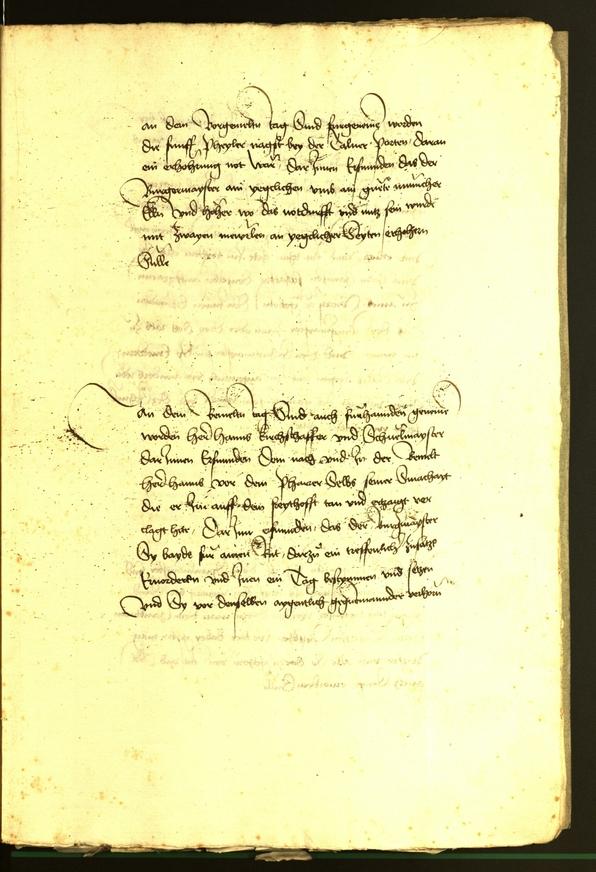 An dem Vorgemelten tag Sind furgenomen worden
die funff Pheyler nagst bey der Talner Porten daran
ein erhohung not War, Dar Innen Erfunden das der
Burgermayster am yegclichen umb ain gute municher
Elln Und hoher wo das notdurfft und nutz sein wurde
mit Zwayen meyrlen an yegclicher Seyten erhohern
Sulle
An dem Bemelten tag Sind auch furhannden genomen
worden herr hanns kirchschaffer und Schuelmayster
dar Innen Erfunden Dem nach und In der
herr hanns vor dem Pharrer Selbs seiner Smachait
die er Im auff dem freythoff tan und ertzaigt ver
clagt hete, Dar Inn erfunden, das der Burgmayster
Sy bayde fur ainen Rat, darzu ein treffenlich Zusatze
Ervordern und Inen ein Tag bestymmen und setzen
Und Sy vor demselben aygentlich gegeneinannder verhorn